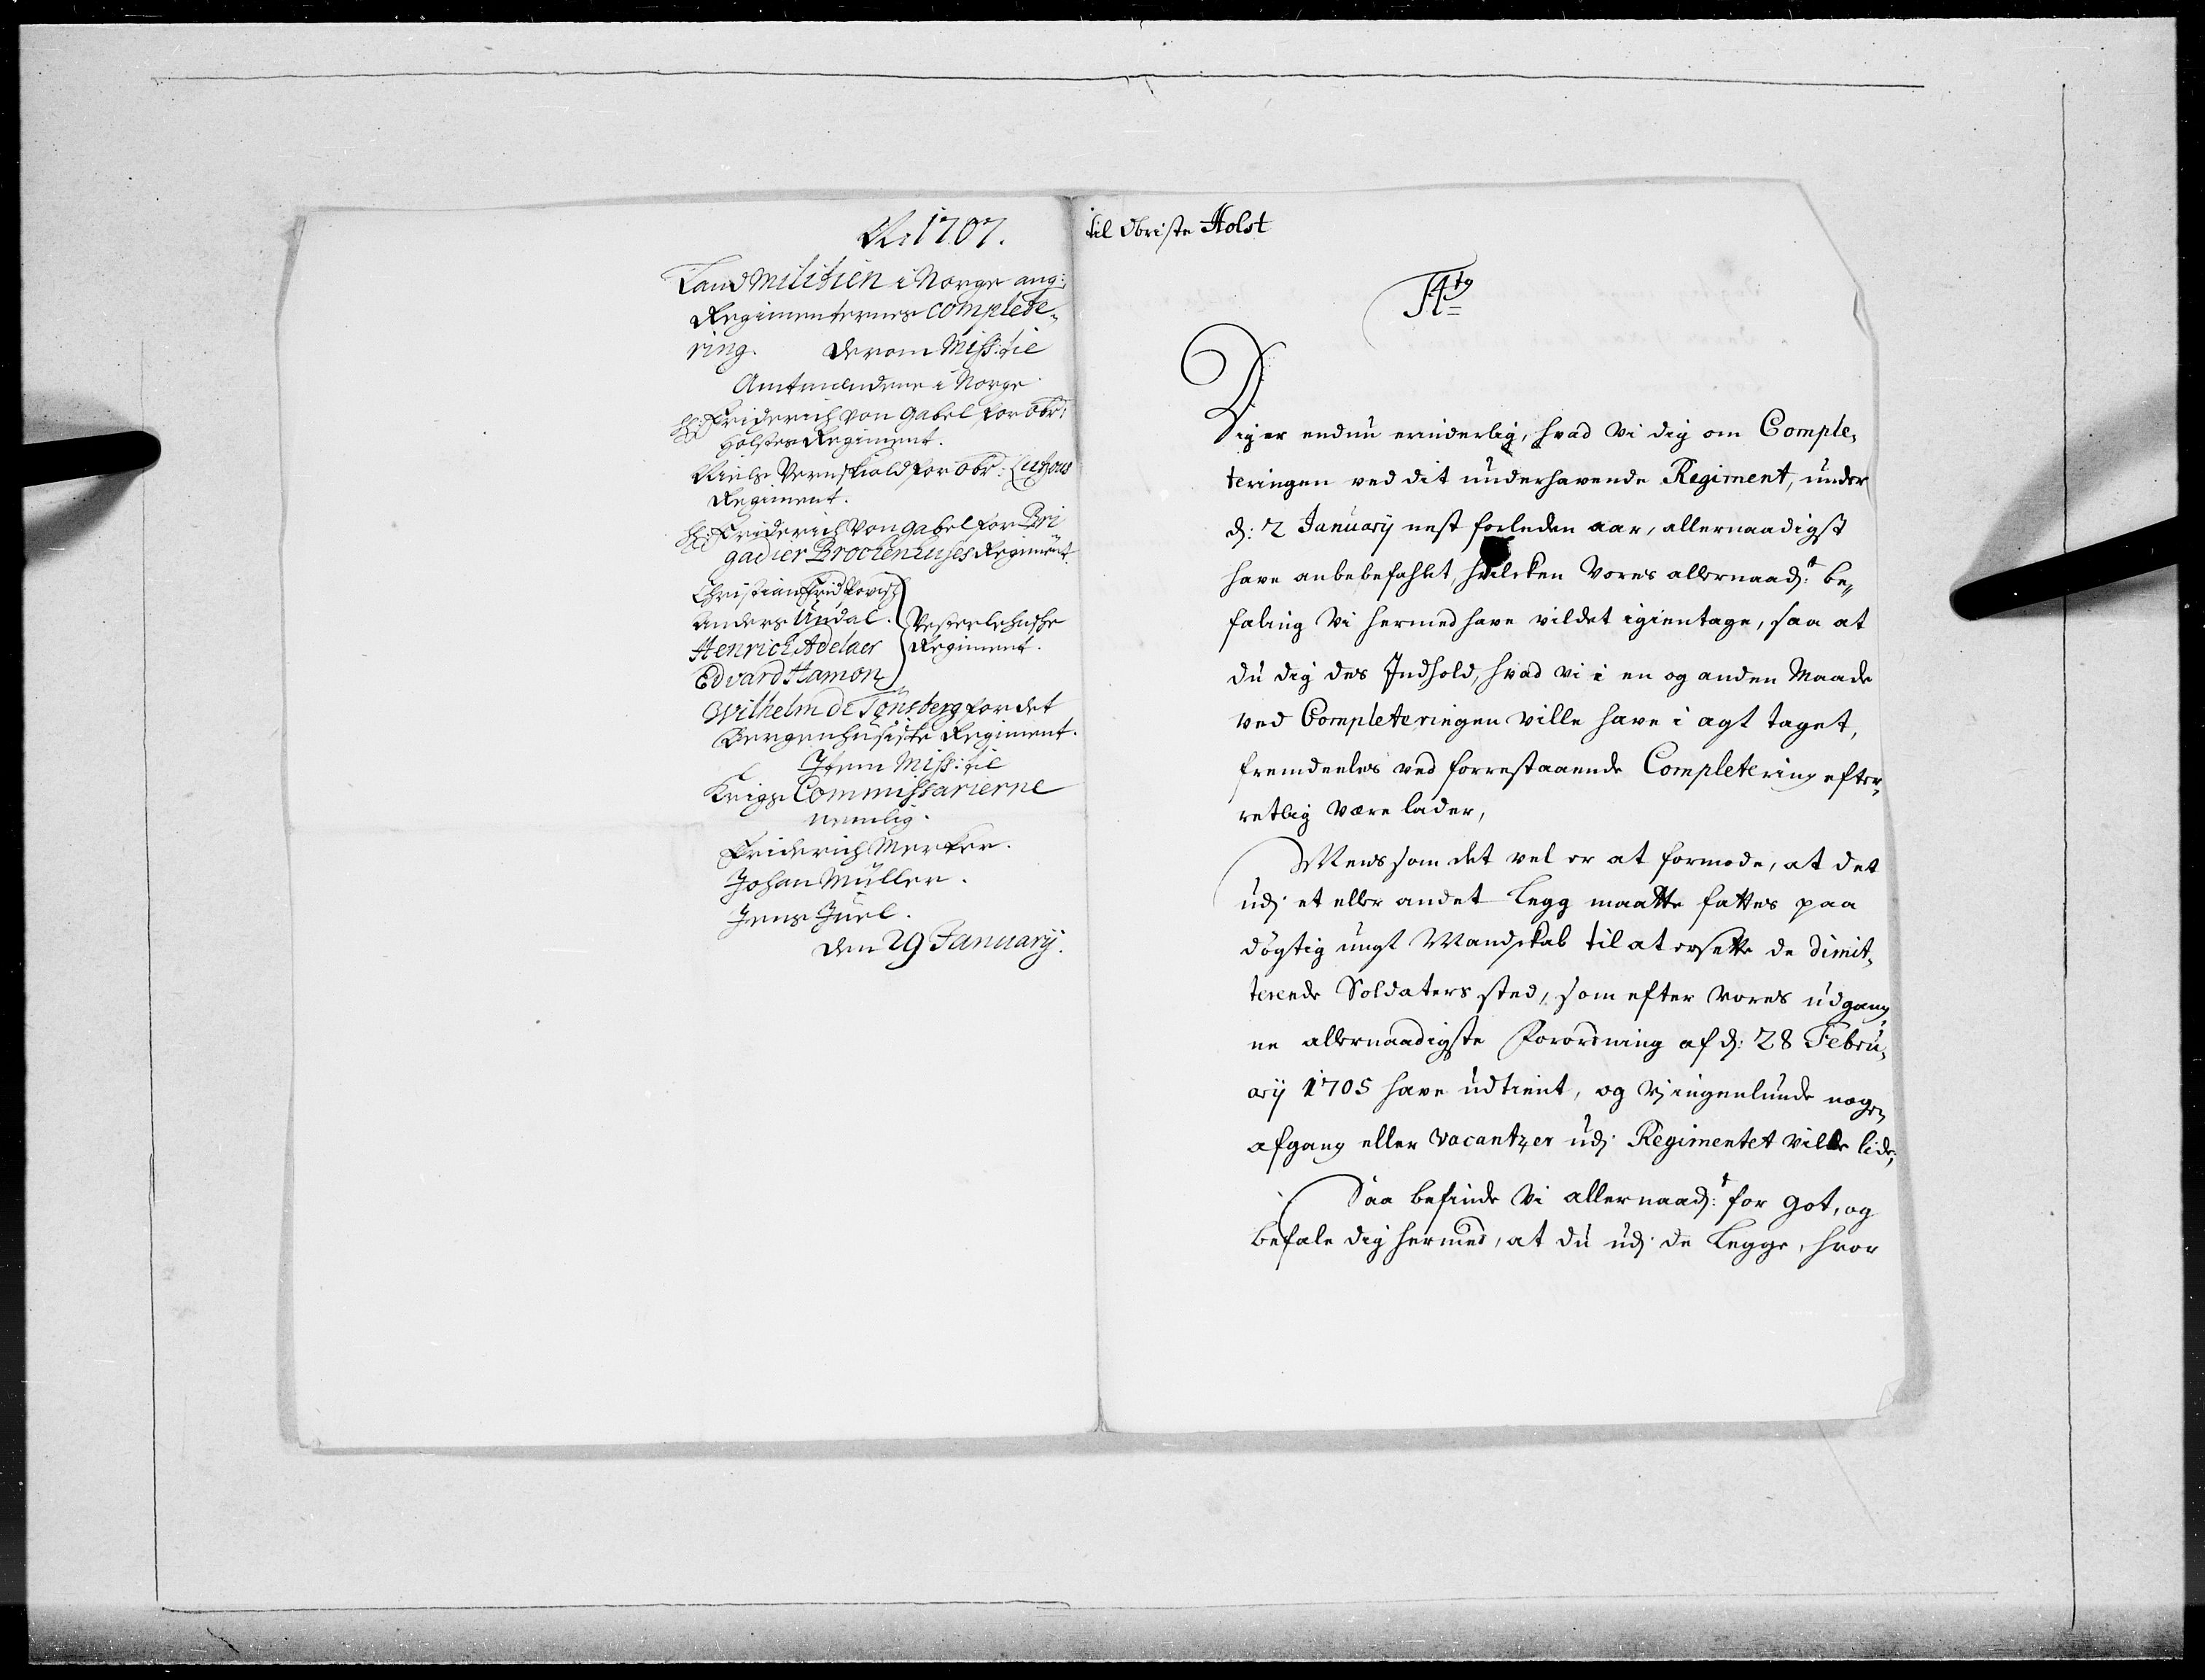 1707.
Land Militien i Norge ang:
Regimenternes complete-
ring. Derom Miss: til
Amtmendene i Norge
Friderich von Gabel for Obr:
Holstes Regiment.
Niels Vernskiold for Obr:
Regiment.
Friderich von Gabel for Bri
gadier Brockenhuses Regiment.
Christian
Anders Undal. Vesterlehnske
Henrich Adelaer Regiment.
Edvard Hamon
Wilhelm de Tonsberg for det
Bergenhusiske Regiment.
Item Miss: til
Krigs Commissarierne
nemlig.
Friderich Merker.
Johan Müller.
Jens Juel.
Den 29 January.
til Obriste Holst
Dig er endnu erinderlig, hvad Vi dig om Comple-
teringen ved dit underhavende Regiment, under
d: 2 January nest forleden aar, allernaadigst
have anbebefahlet, hvilcken Vores allernaad:t be-
faling Vi hermed have vildet igientage, saa at
du dig des Indhold, hvad vi i en og anden Maade
ved Completeringen ville have i agt taget,
fremdeeles ved forrestaaende Completering efter-
retlig være lader,
Mens som det vel er at formode, at det
udj et eller andet Legg maatte fattes paa
døgtig ungt Mandskab til at ersette de dimit-
terende Soldaters sted, som efter Vores udgang-
ne allernaadigste Forordning af d: 28 Febru-
ary 1705 have udtient, og Vj ingenlunde nogen
afgang eller vacantzer udj Regimentet ville lide;
Saa befinde Vi allernaad:t for got, og
befale dig hermed, at du udj de Legge, hvor